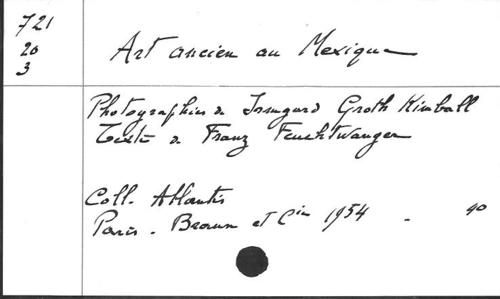 721
20
3
Art ancien au Mexique
Photographies de Irmgard Groth Kimball
Texte de Franz Feuchtwanger
Coll. Atlantis
Paris - Braun et Cie 1954 - 40